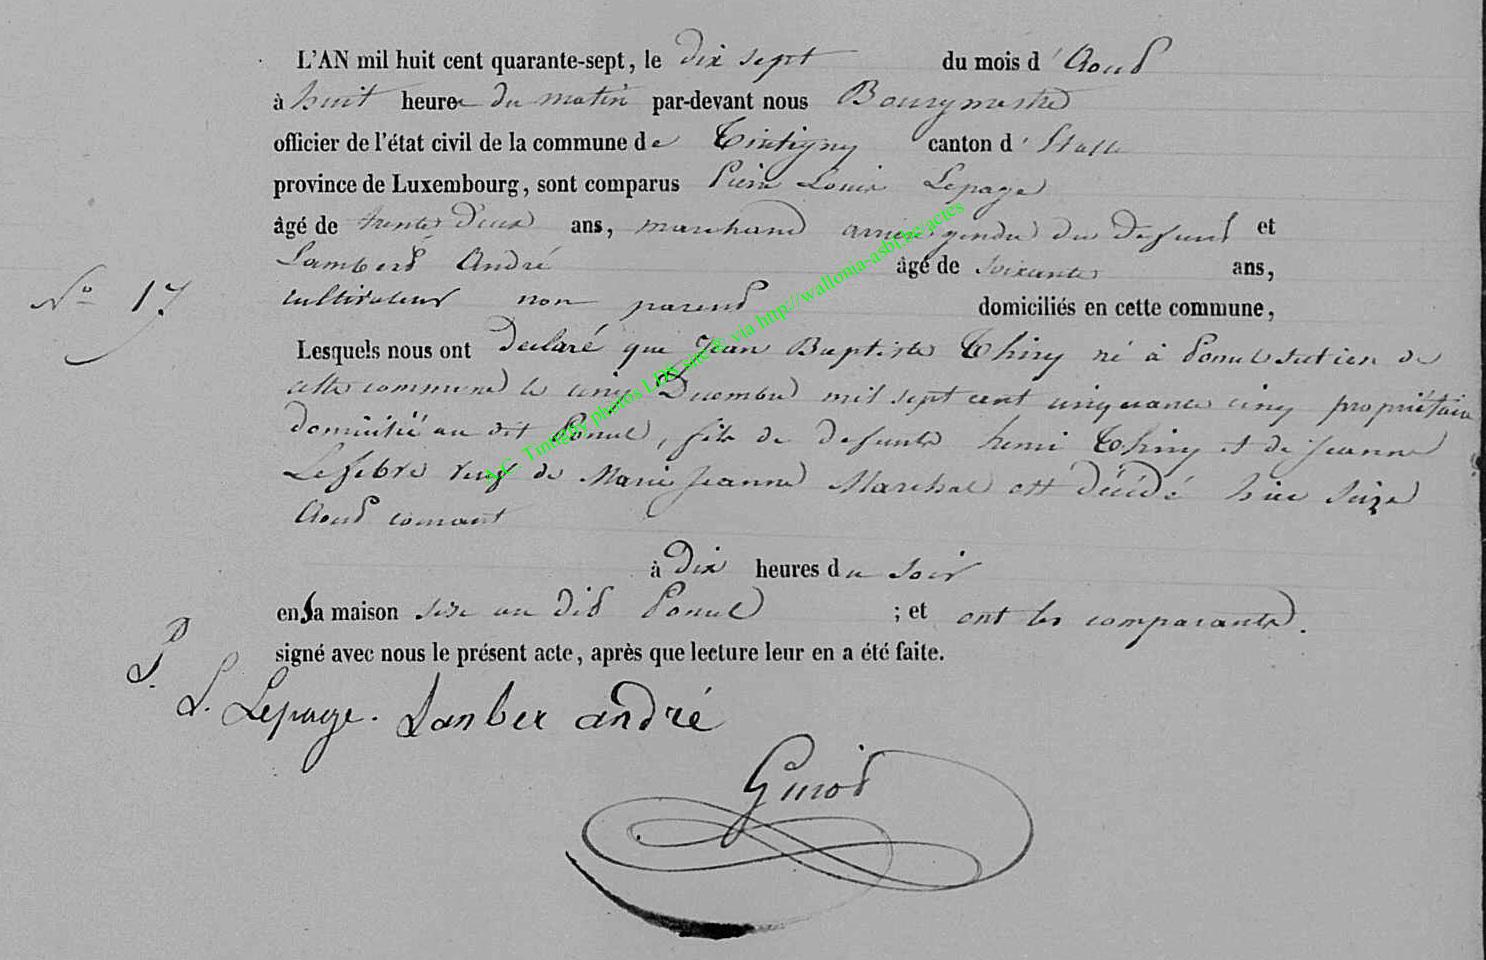 L'AN mil huit cent quarante-sept, le dix sept du mois d'Aout
à huit heure du matin par-devant nous Bourgmestre
officier de l'état civil de la commune de Tintigny canton d'Etalle
province de Luxembourg, sont comparus Pierre Louis Lepage
âgé de trente deux ans, marchand du defunt et
Lambert André âgé de soixante ans,
N° 17. cultivateur non parent domiciliés en cette commune,
Lesquels nous ont declaré que Jean Baptiste Thiry né à section de
cette commune le cinq Decembre mil sept cent cinquante cinq propriétaire
domicilié au dit, fils de defunts henri Thiry et de Jeanne
Lefebvre veuf de Marie Jeanne Marchal est décédé hier seize
Aout courant
à Dix heures du soir
en sa maison sise au dit ; et ont les comparants.
signé avec nous le présent acte, après que lecture leur en a été faite.
P. L. Lepage. Lanber andré
A.C. Tintigny photos LDS site & via http://wallonia-asbl.be/actes